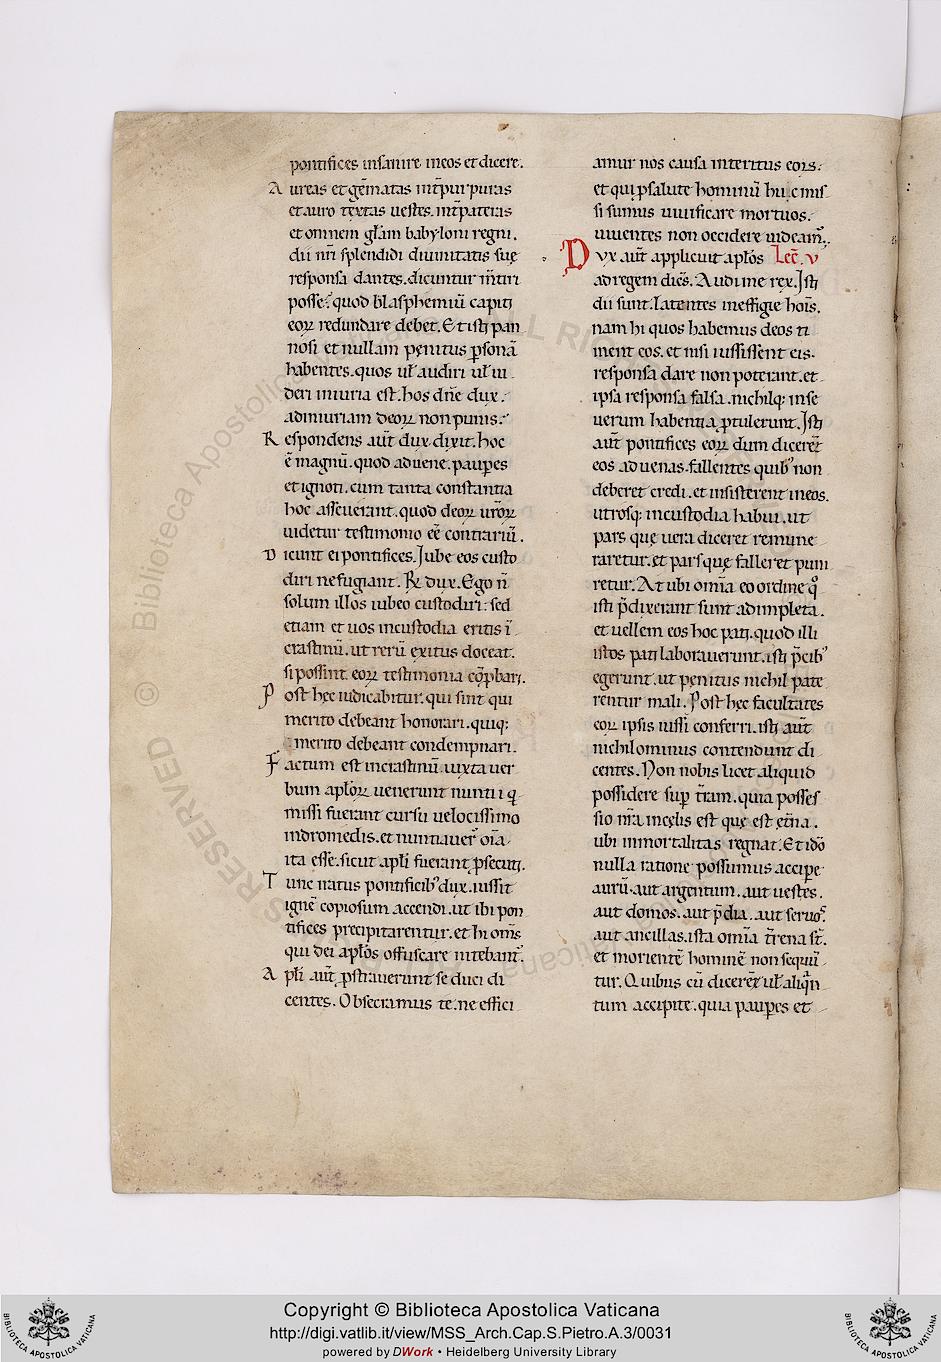 pontifices insanire in eos et dicere.
Aureas et gēmatas int̄ purpuras
et auro textas uestes. int̄ pateras
et omnem gl̄am babyloni regni.
dii nr̄i splendidi diuinitatis suę
responsa dantes. dicuntur m̄tiri
posse? quod blasphemiū capiti
eoꝝ redundare debet. Et isti pan
nosi et nullam penitus ꝑsonā
habentes. quos ul̓ audiri ul̓ ui
deri iniuria est. hos dn̄e dux.
ad iniuriam deoꝝ non punis?
Respondens aūt dux dixit. hoc
ē magnū. quod aduene. paupes
et ignoti. cum tanta constantia
hoc asseuerant. quod deoꝝ ur̄oꝝ
uidetur testimonio eē contrariū.
Dicunt ei pontifices. Jube eos custo
diri ne fugiant. R̄ dux. Ego n̄
solum illos iubeo custodiri: sed
etiam et uos in custodia eritis ī
crastinū. ut rerū exitus doceat.
si possint eoꝝ testimonia cōꝓbari.
Post hęc iudicabitur. qui sint qui
merito debeant honorari. quiq;
merito debeant condempnari.
Factum est in crastinū iuxta uer
bum apl̓oꝝ uenerunt nuntii q
missi fuerant cursu uelocissimo
in dromedis. et nuntiauer̄ oīa
ita esse. sicut apl̓i fuerant ꝓsecuti.
Tunc iratus pontificib᾿ dux. iussit
ignē copiosum accendi. ut ibi pon
tifices precipitarentur. et hi om̄s
qui dei apl̓os offuscare nitebant᾿.
Apl̓i aūt ꝓstrauerunt se duci di
centes. Obsecramus te. ne effici
amur nos causa interitus eoꝝ:
et qui ꝓ salute hominū huc mis
si sumus uiuificare mortuos.
uiuentes non occidere uideam᾿.
Dux aūt applicuit apl̓os Lec̄. v
ad regem dic̄s. Audi me rex. Isti
dii sunt. latentes in effigie hoīs.
nam hi quos habemus deos ti
ment eos. et nisi iussissent eis.
responsa dare non poterant. et
ipsa responsa falsa. nichilq; in se
uerum habentia ꝓtulerunt. Isti
aūt pontifices eoꝝ dum dicerēt
eos aduenas. fallentes quib᾿ non
deberet credi. et insisterent in eos.
utrosq; in custodia habui. ut
pars quę uera diceret remune
raretur. et pars quę falleret puni
retur. At ubi omīa eo ordine qͦ
isti p̄dixerant sunt adimpleta.
et uellem eos hoc pati. quod illi
istos pati laborauerunt. isti p̄cib᾿
egerunt. ut penitus nichil pate
rentur mali. Post hęc facultates
eoꝝ ipsis iussi conferri. isti aūt
nichilominus contendunt di
centes. Non nobis licet aliquid
possidere sup t̄ram. quia posses
sio nr̄a in cęlis est quę est et̄na.
ubi immortalitas regnat. Et idō
nulla ratione possumus accipe
aurū. aut argentum. aut uestes.
aut domos. aut p̄dia. aut seruos.
aut ancillas. ista omīa t̄rena st̄.
et morientē hominē non sequū
tur. Quibus cū dicerem ul̓ aliqn̄
tum accipite. quia pauperes et
BIBLIOTECA APOSTOLICA VATICANA
Copyright © Biblioteca Apostolica Vaticana
http://digi.vatlib.it/view/MSS_Arch.Cap.S.Pietro.A.3/0031
powered by DWork • Heidelberg University Library
BIBLIOTECA APOSTOLICA VATICANA